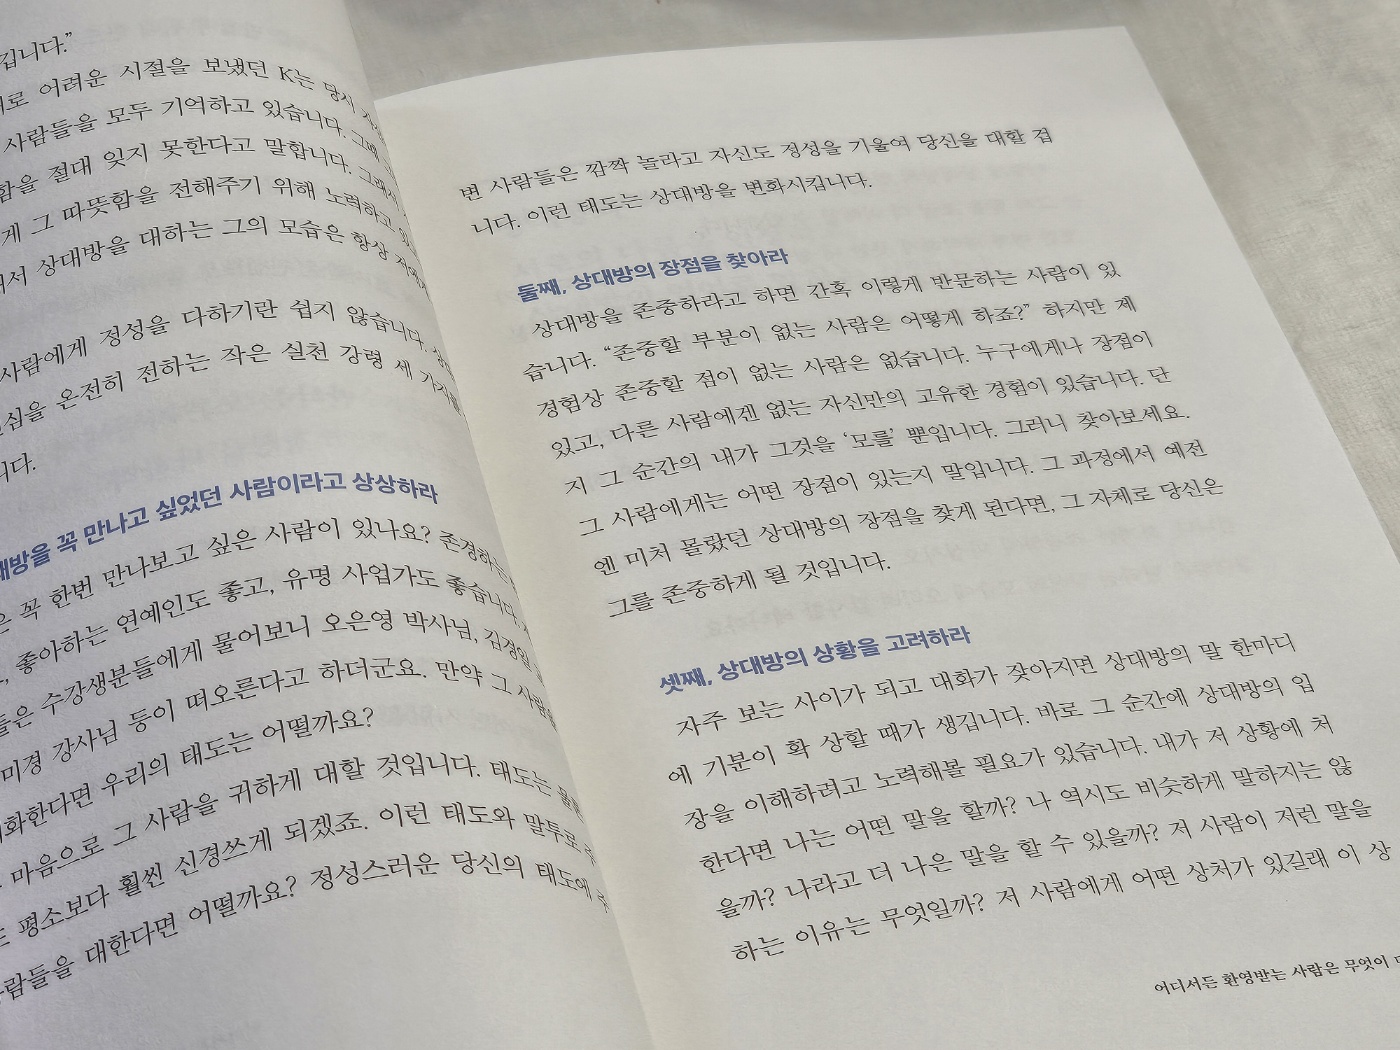 깁니다.”
로 어려운 시절을 보냈던 K는 당시
사람들을 모두 기억하고 있습니다. 그때
함을 절대 잊지 못한다고 말합니다. 그래서
게 그 따뜻함을 전해주기 위해 노력하고 있
서 상대방을 대하는 그의 모습은 항상 저에게
사람에게 정성을 다하기란 쉽지 않습니다.
심을 온전히 전하는 작은 실천 강령 세 가지를
니다.
대방을 꼭 만나고 싶었던 사람이라고 상상하라
은 꼭 한번 만나보고 싶은 사람이 있나요? 존경하는
, 좋아하는 연예인도 좋고, 유명 사업가도 좋습니다.
들은 수강생분들에게 물어보니 오은영 박사님, 김경일
미경 강사님 등이 떠오른다고 하더군요. 만약 그 사람
화한다면 우리의 태도는 어떨까요?
마음으로 그 사람을 귀하게 대할 것입니다. 태도는 물론
평소보다 훨씬 신경쓰게 되겠죠. 이런 태도와 말투로
람들을 대한다면 어떨까요? 정성스러운 당신의 태도에 주
변 사람들은 깜짝 놀라고 자신도 정성을 기울여 당신을 대할 겁
니다. 이런 태도는 상대방을 변화시킵니다.
둘째, 상대방의 장점을 찾아라
상대방을 존중하라고 하면 간혹 이렇게 반문하는 사람이 있
습니다. “존중할 부분이 없는 사람은 어떻게 하죠?” 하지만 제
경험상 존중할 점이 없는 사람은 없습니다. 누구에게나 장점이
있고, 다른 사람에겐 없는 자신만의 고유한 경험이 있습니다. 단
지 그 순간의 내가 그것을 ‘모를’ 뿐입니다. 그러니 찾아보세요.
그 사람에게는 어떤 장점이 있는지 말입니다. 그 과정에서 예전
엔 미처 몰랐던 상대방의 장점을 찾게 된다면, 그 자체로 당신은
그를 존중하게 될 것입니다.
셋째, 상대방의 상황을 고려하라
자주 보는 사이가 되고 대화가 잦아지면 상대방의 말 한마디
에 기분이 확 상할 때가 생깁니다. 바로 그 순간에 상대방의 입
장을 이해하려고 노력해볼 필요가 있습니다. 내가 저 상황에 처
한다면 나는 어떤 말을 할까? 나 역시도 비슷하게 말하지는 않
을까? 나라고 더 나은 말을 할 수 있을까? 저 사람이 저런 말을
하는 이유는 무엇일까? 저 사람에게 어떤 상처가 있길래 이 상
어디서든 환영받는 사람은 무엇이